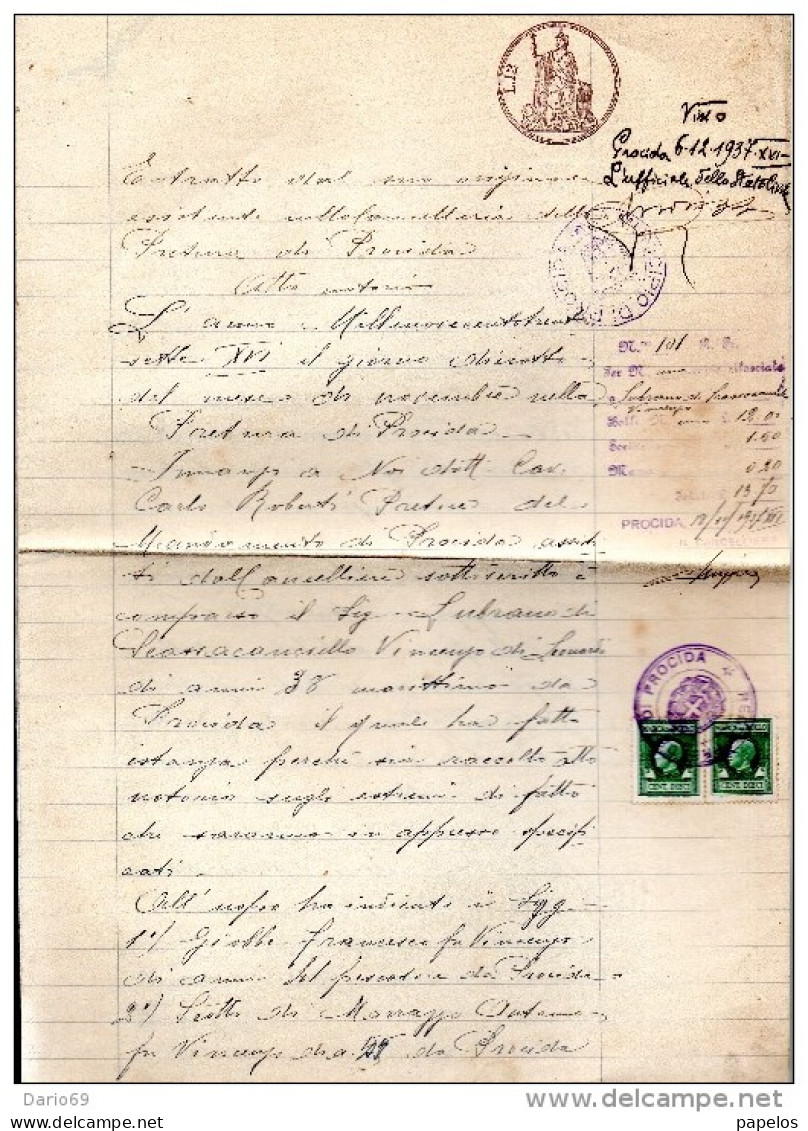 L.12
Visto
Procida 6.12.1937.XVI-
L'ufficiale dello Stato Civile
Estratto dal suo originale
esistente nella Cancelleria della
Pretura di Procida
Atto notorio
L'anno Millenovecentotrenta
sette XVI il giorno diciotto
del mese di novembre nella
Pretura di Procida -
Innanzi a Noi dott. Cav.
Carlo Roberti Pretore del
Mandamento di Procida assisti
ti dal Cancelliere sottoscritto è
comparso il Sig. Lubrano di
Scarracanillo Vincenzo di
di anni 38 marittimo da
Procida il quale ha fatto
istanza perchè sia raccolto atto
notorio sugli estremi di fatto
che saranno in appresso specifi
cati.
All'uopo ha indicato i Sigg.
1°) Giobbe Francesco fu Vincenzo
di anni pescatore da Procida -
2°) Scotto di Marrazzo Antonio
fu Vincenzo di a. da Procida
MUNICIPIO DI PROCIDA
N. 101
rilasciato
a Lubrano di
Vincenzo
12.00
1.50
0.20
13.70
PROCIDA
DI PROCIDA
CENT. DIECI
CENT. DIECI
Dario69
delcampe.net
papelos